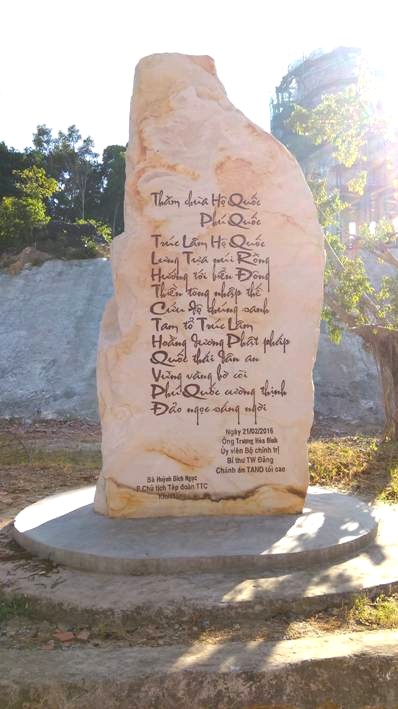 Thăm chùa Hộ Quốc
Phú Quốc
Trúc Lâm Hộ Quốc
Lưng Tựa núi Rồng
Hướng tới biển Đông
Thiền tông nhập thế
Cứu độ chúng sanh
Tam tổ Trúc Lâm
Hoằng dương Phật pháp
Quốc thái dân an
Vững vàng bờ cõi
Phú Quốc cường thịnh
Đảo ngọc sáng ngời
Ngày 21/02/2016
Ông Trương Hòa Bình
Ủy viên Bộ chính trị
Bí thư TW Đảng
Chánh án TAND tối cao
Bà Huỳnh Bích Ngọc
P.Chủ tịch Tập đoàn TTC